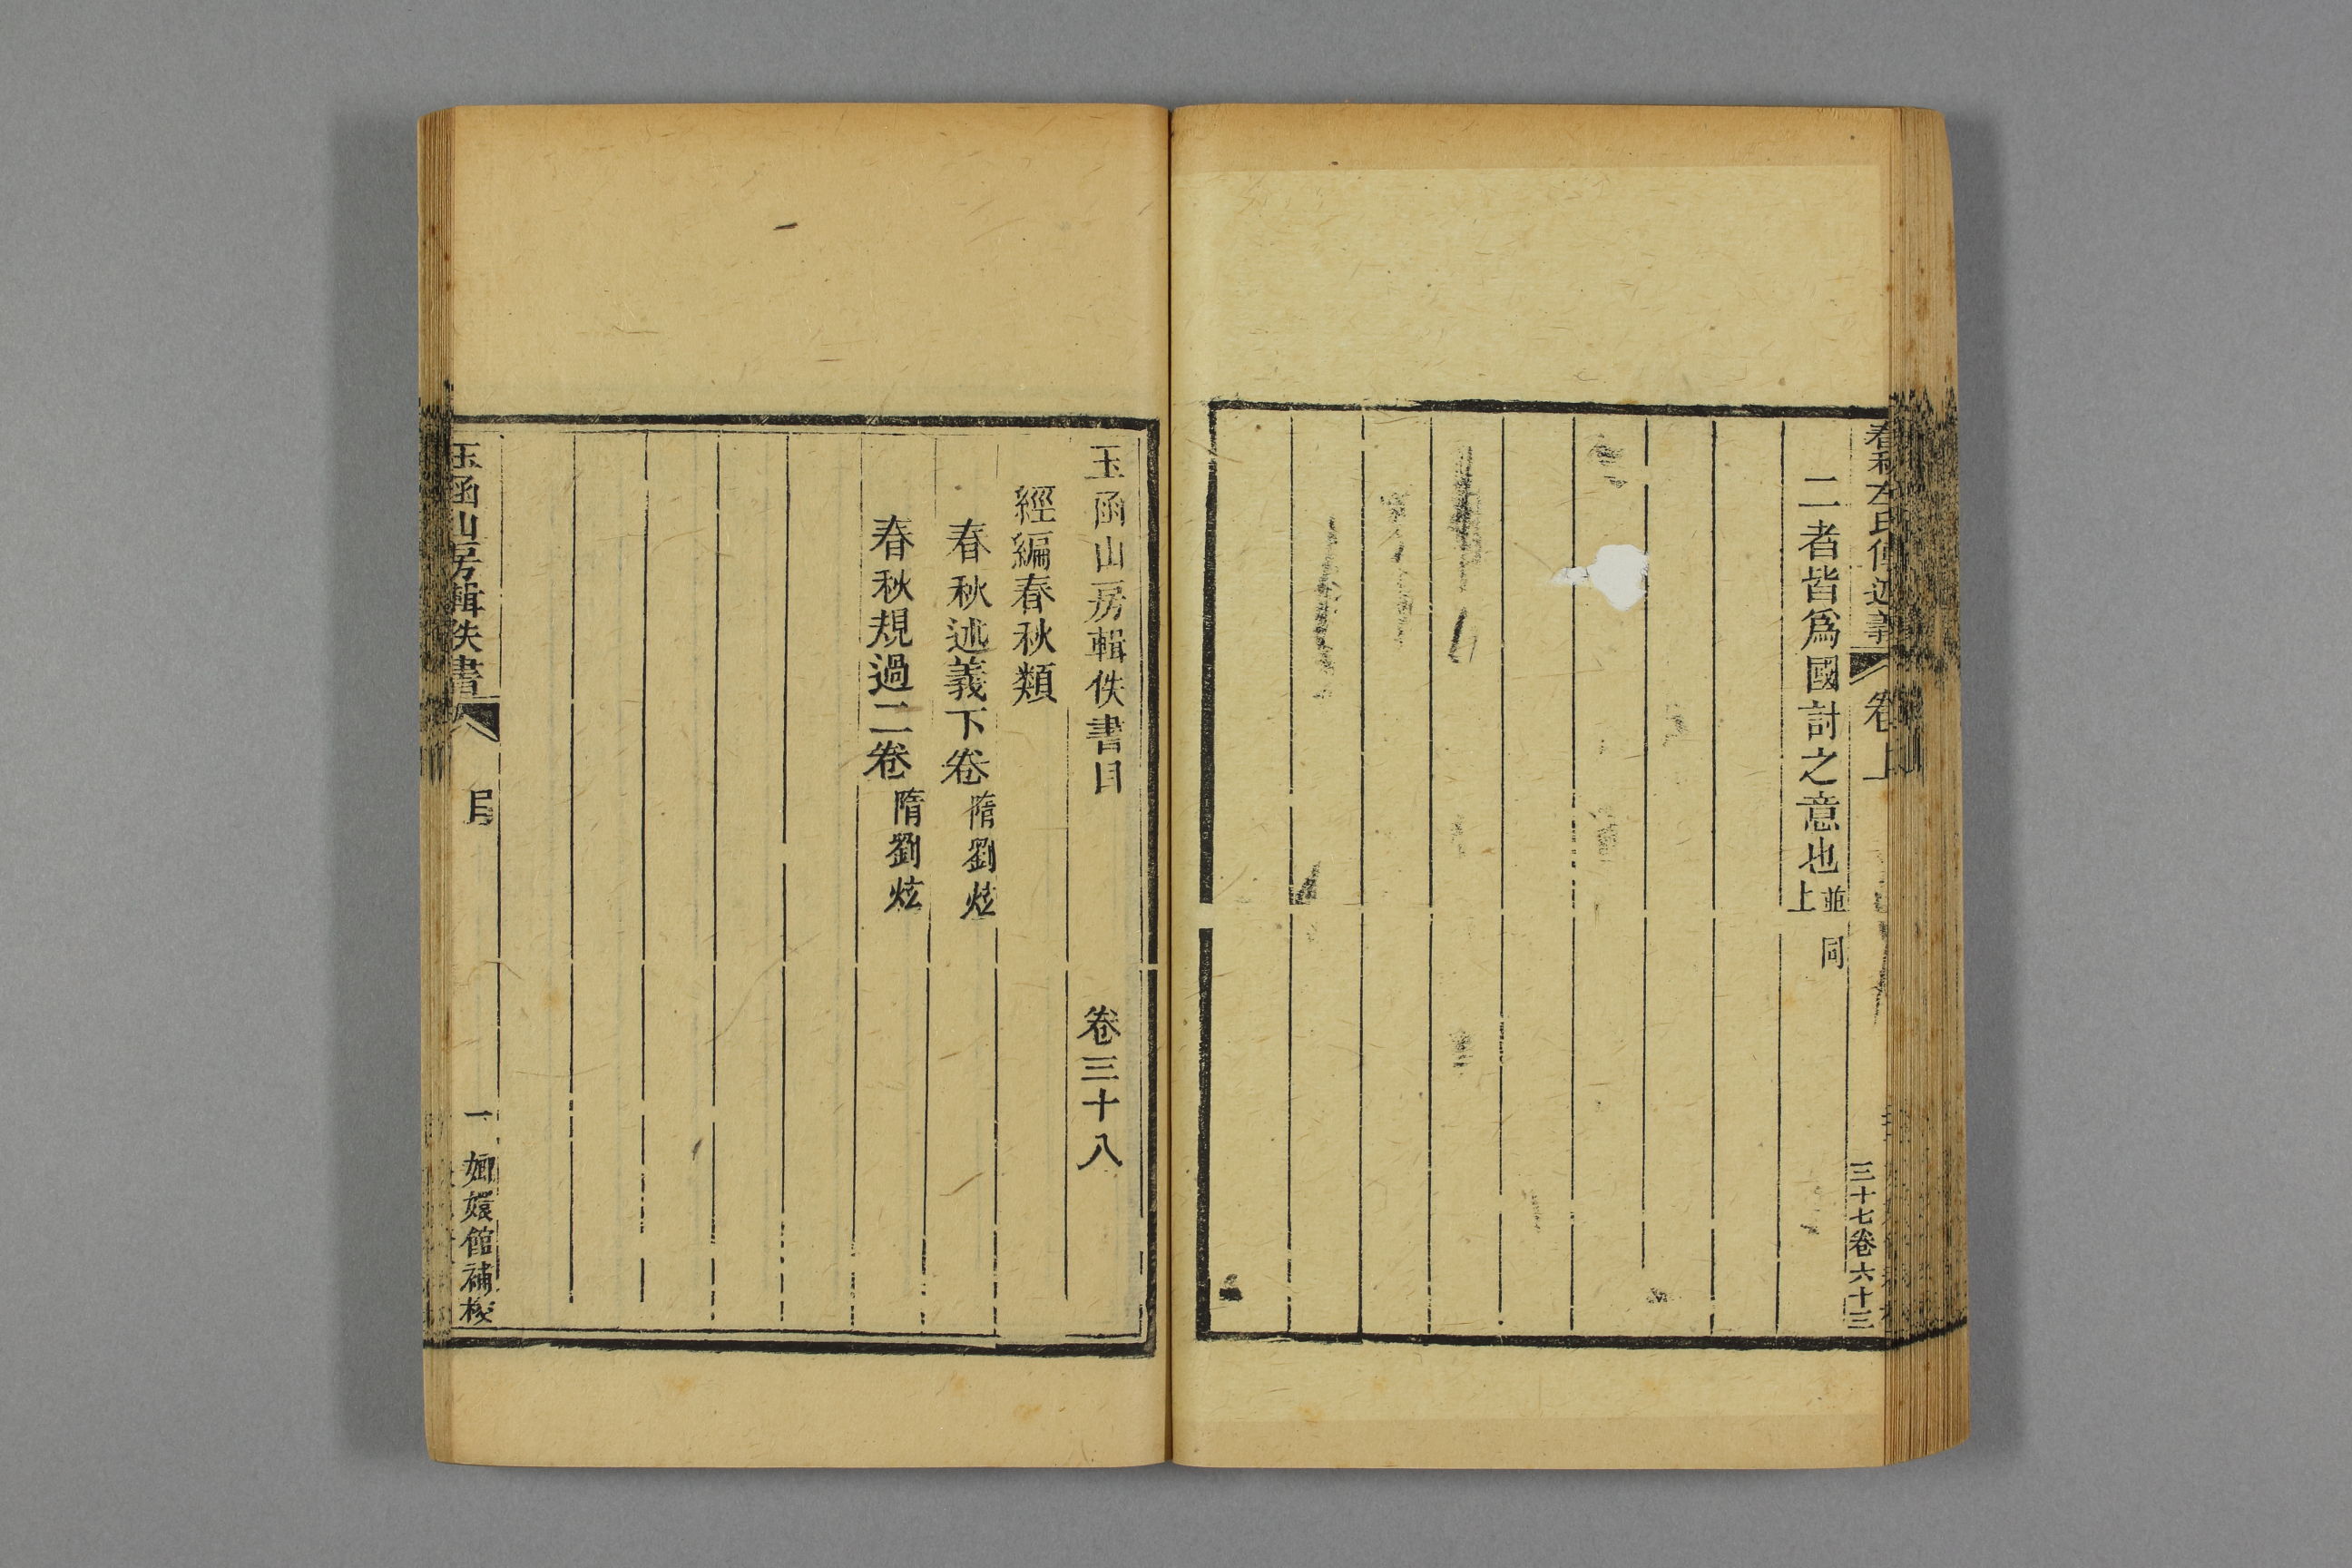 春秋左氏傳述義 卷上 三十七卷六十三
二者皆爲國討之意也並同上
玉函山房輯佚書目 卷三十八
經編春秋類
春秋述義下卷隋劉炫
春秋規過二卷隋劉炫
玉函山房輯佚書 目 一 嫏嬛館補校